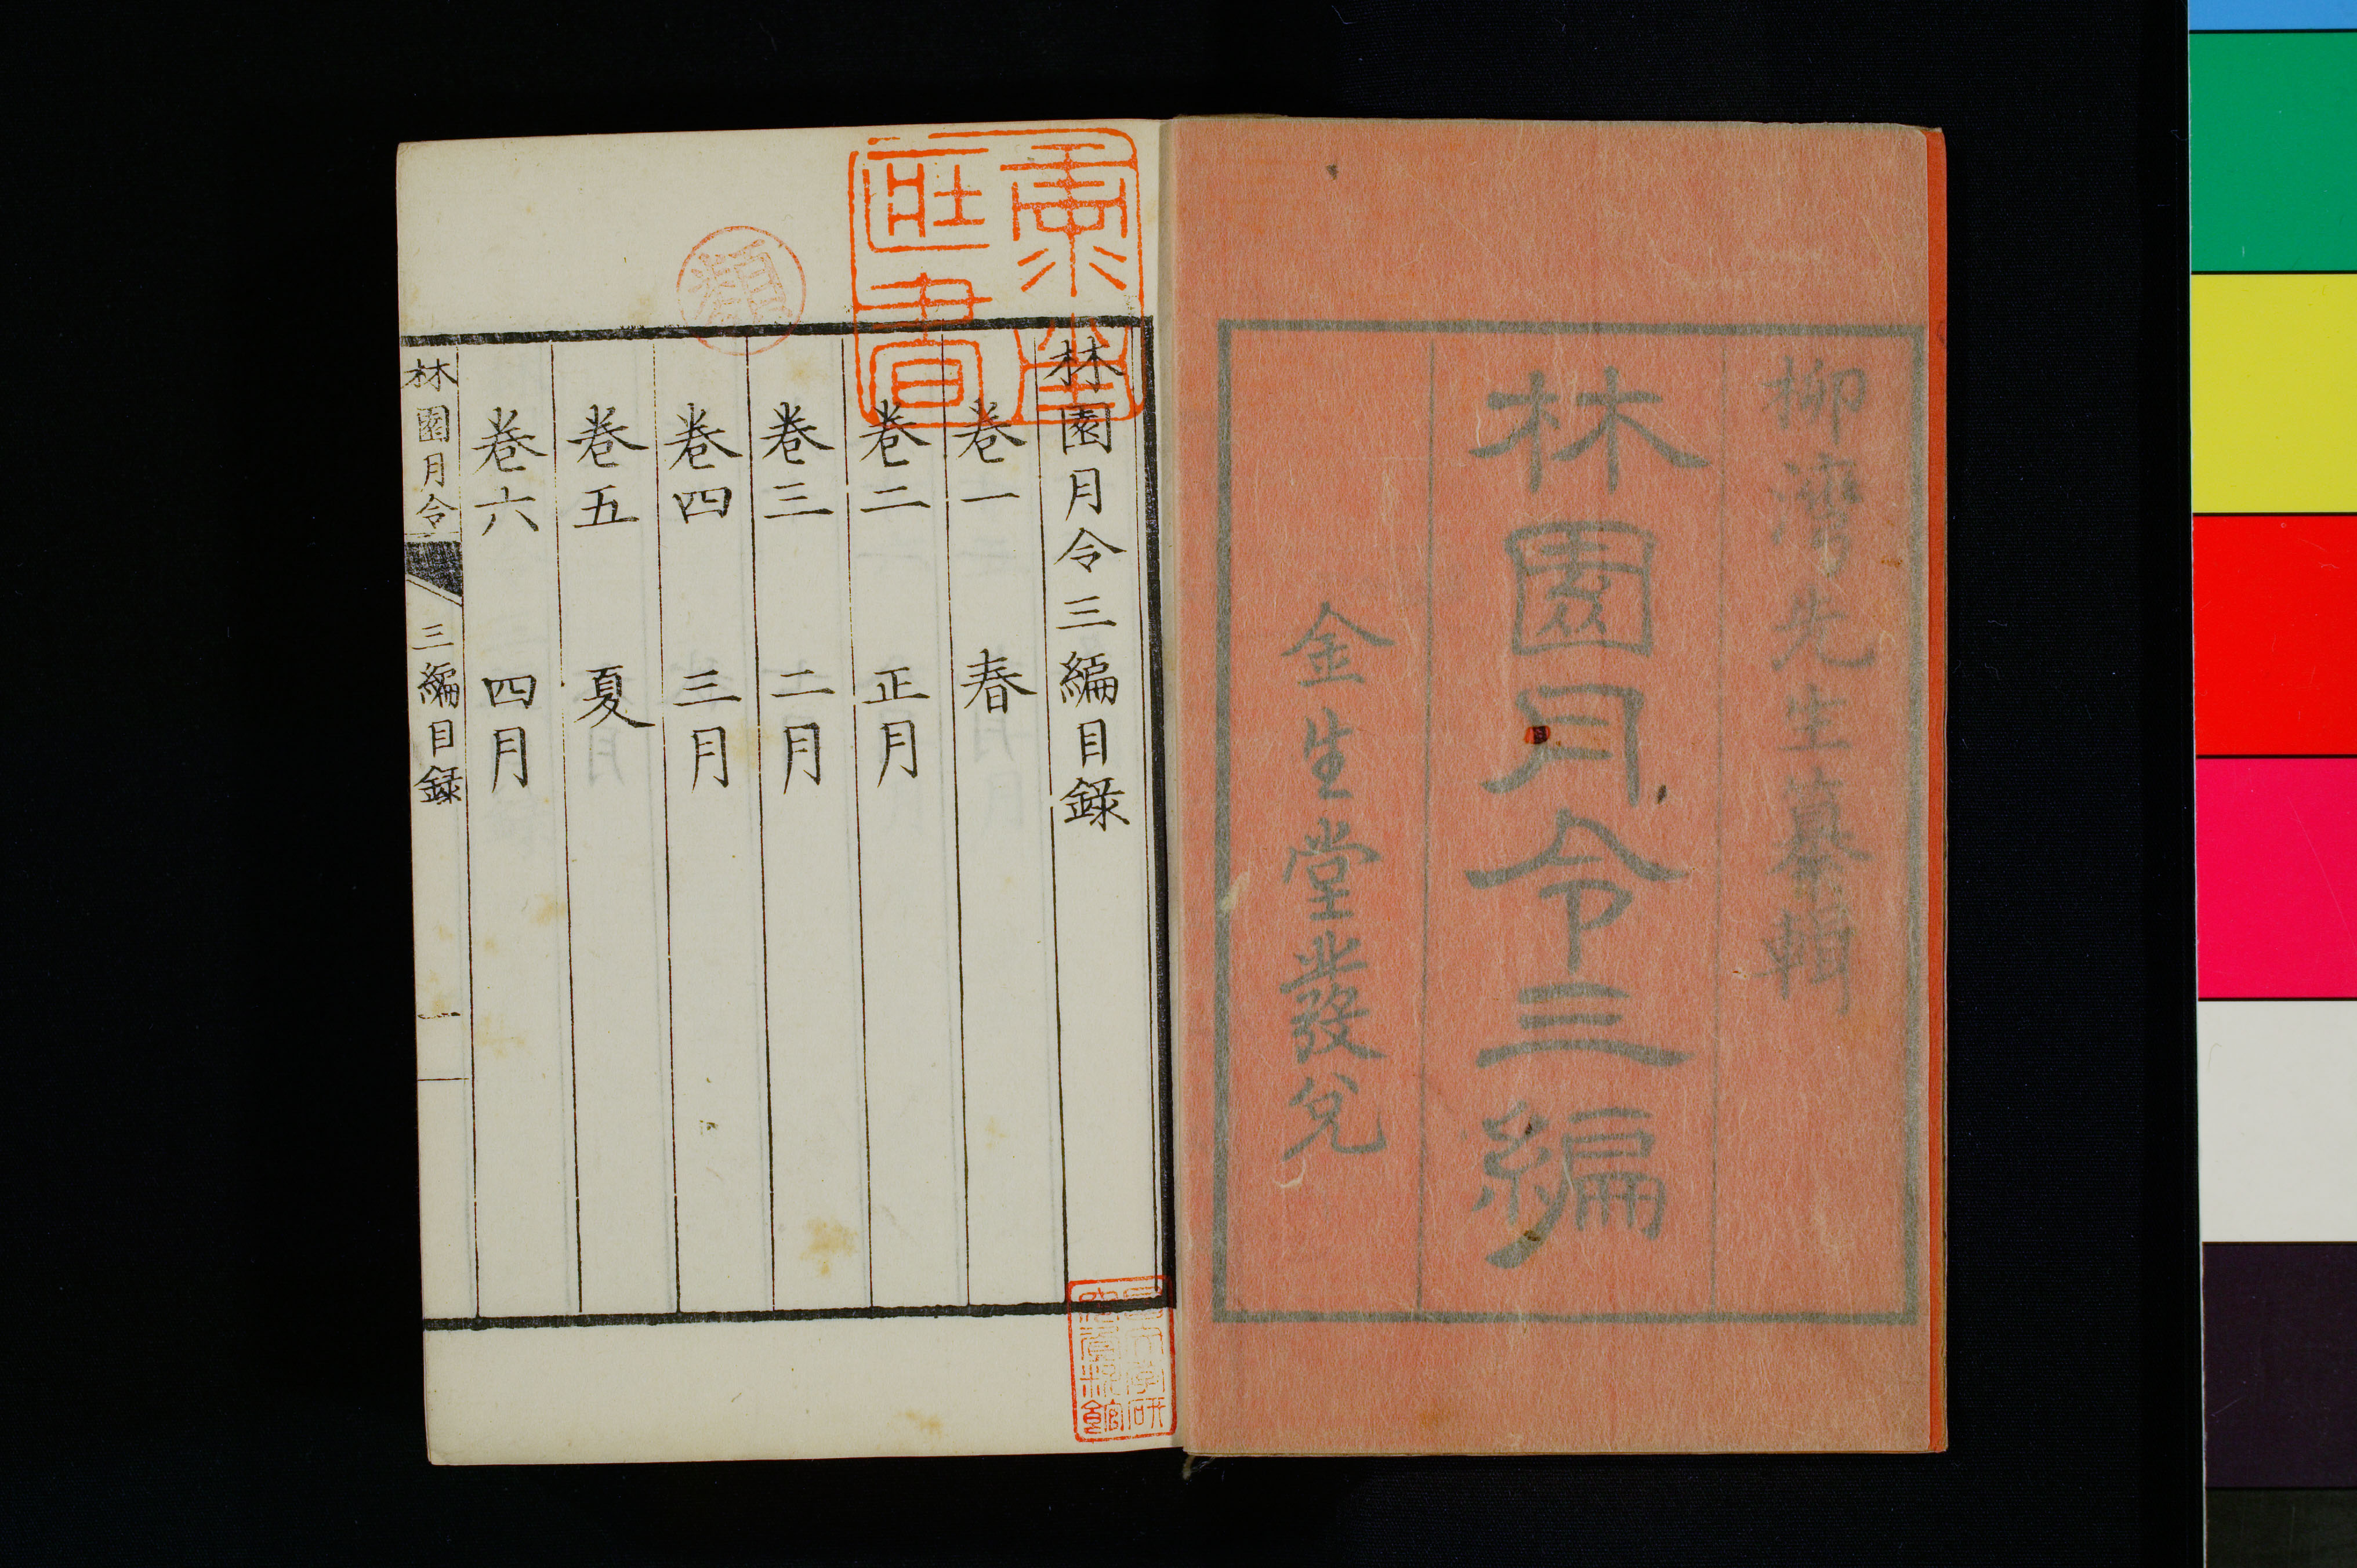 柳灣先生纂輯
林園月令三編
金生堂發兌
林園月令三編目錄
卷一 春
卷二 正月
卷三 二月
卷四 三月
卷五 夏
卷六 四月
林園月令 三編目錄 一